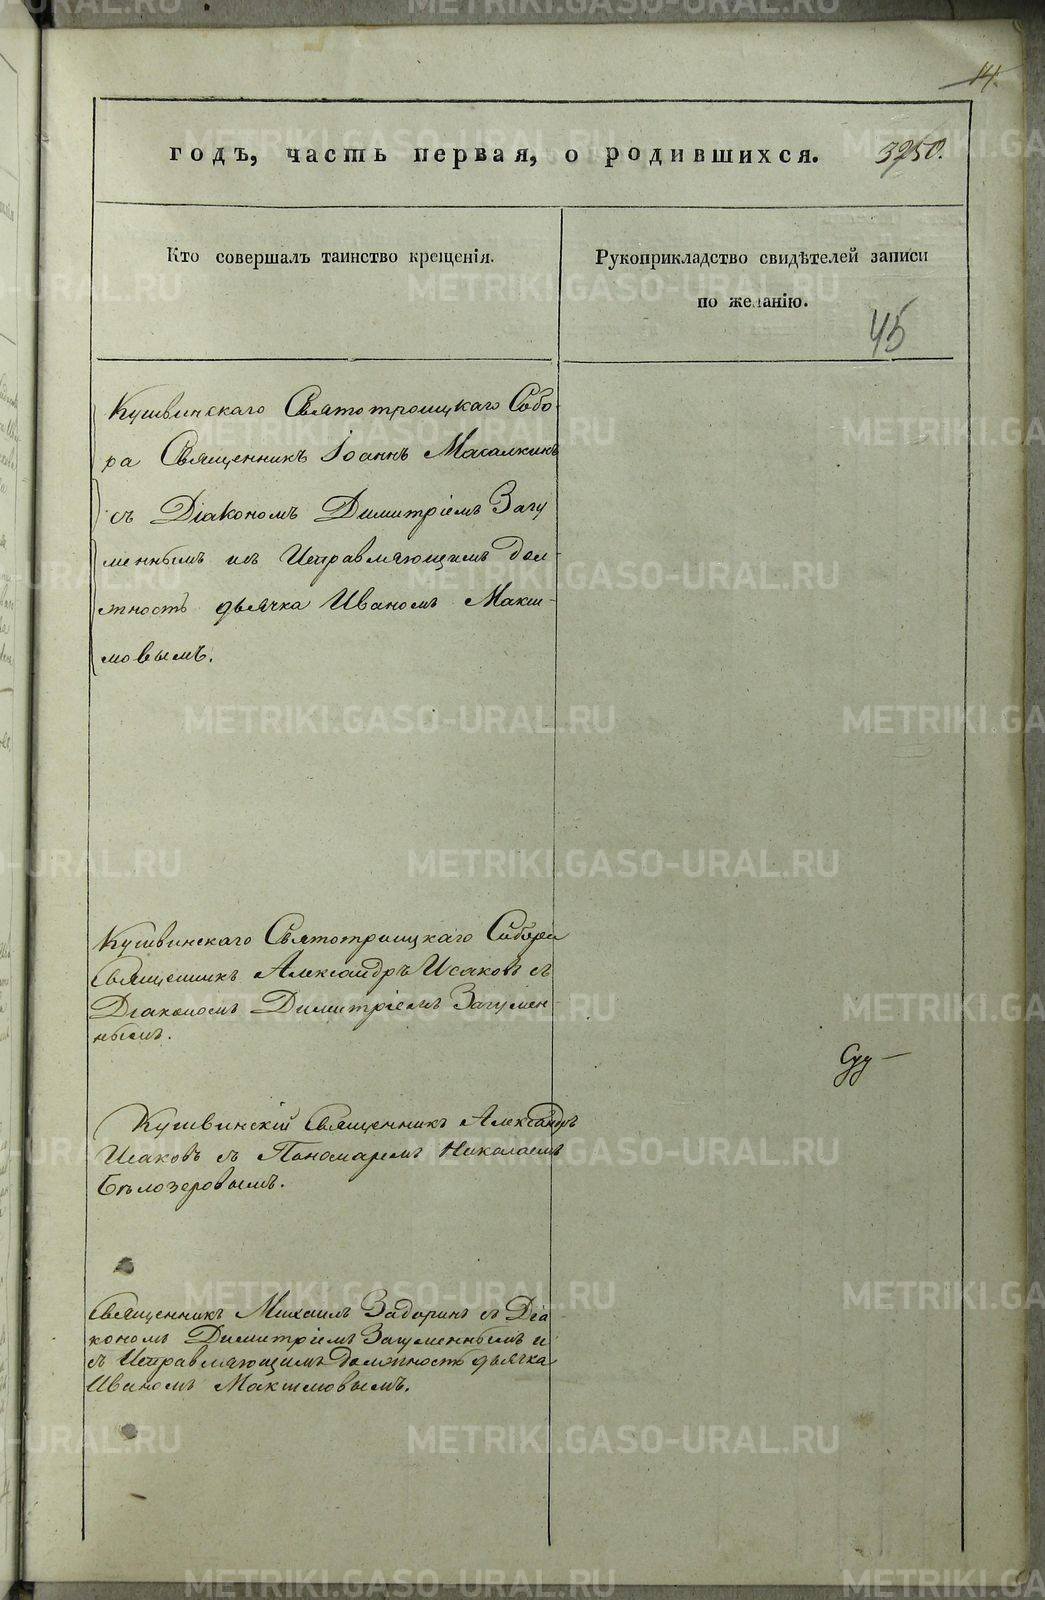 14.
годъ, часть первая, о родившихся. 3250.
Кто совершалъ таинство крещенія.
Рукоприкладство свидѣтелей записи
по желанію.
45
Кушвинскаго Святотроицкаго Собо-
ра Священникъ Іоаннъ Масалкинъ
съ Діакономъ Димитріемъ Загу
меннымъ и съ Исправляющимъ дол-
жность дьячка Иваномъ Макси-
мовымъ.
Кушвинскаго Святотроицкаго Собора
Священникъ Александръ Исаковъ съ
Діакономъ Димитріемъ Загумен-
нымъ.
Кушвинскій Священникъ Александръ
Исаковъ съ Пономаремъ Николаемъ
Бѣлозеровымъ.
Священникъ Михаилъ Задоринъ съ Діа
кономъ Димитріемъ Загуменнымъ и
съ Исправляющимъ должность дьячка
Иваномъ Максимовымъ.
METRIKI.GASO-URAL.RU